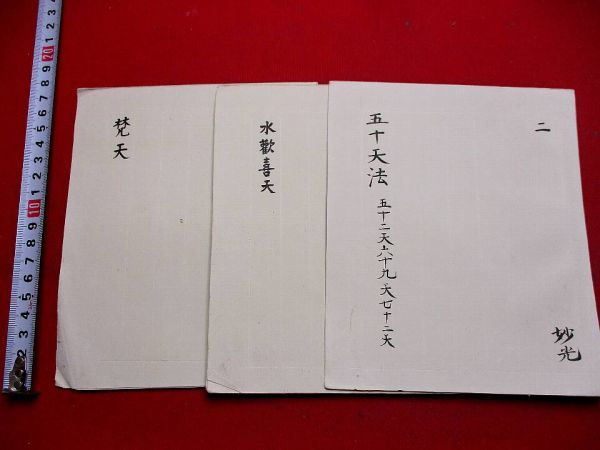 二
五十天法
五十二天六十九天七十二天
妙光
水歡喜天
梵天
1 2 3 4 5 6 7 8 9 20 1 2 3 4 5 6 7 8 9 10 9 8 7 6 5 4 3 2